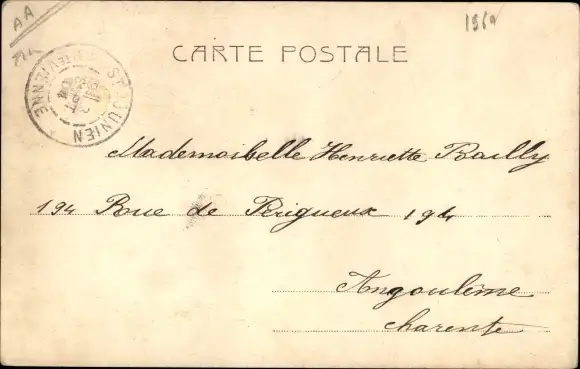 AA
1960
CARTE POSTALE
ST JUNIEN
HTE VIENNE
Mademoiselle Henriette Bailly
194 Rue de Périgueux 194
Angoulême
Charente